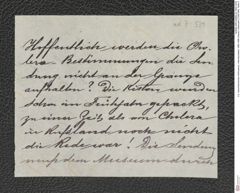 Hoffentlich werden die Cho-
lera Bestimmungen die Sen-
dung nicht an der Grenze
aufhalten? Die Kisten wurden
schon im Frühjahr gepackt,
zu einer Zeit als von Cholera
in Rußland noch nicht
die Rede war! Die Sendung
muß dem Museum durch